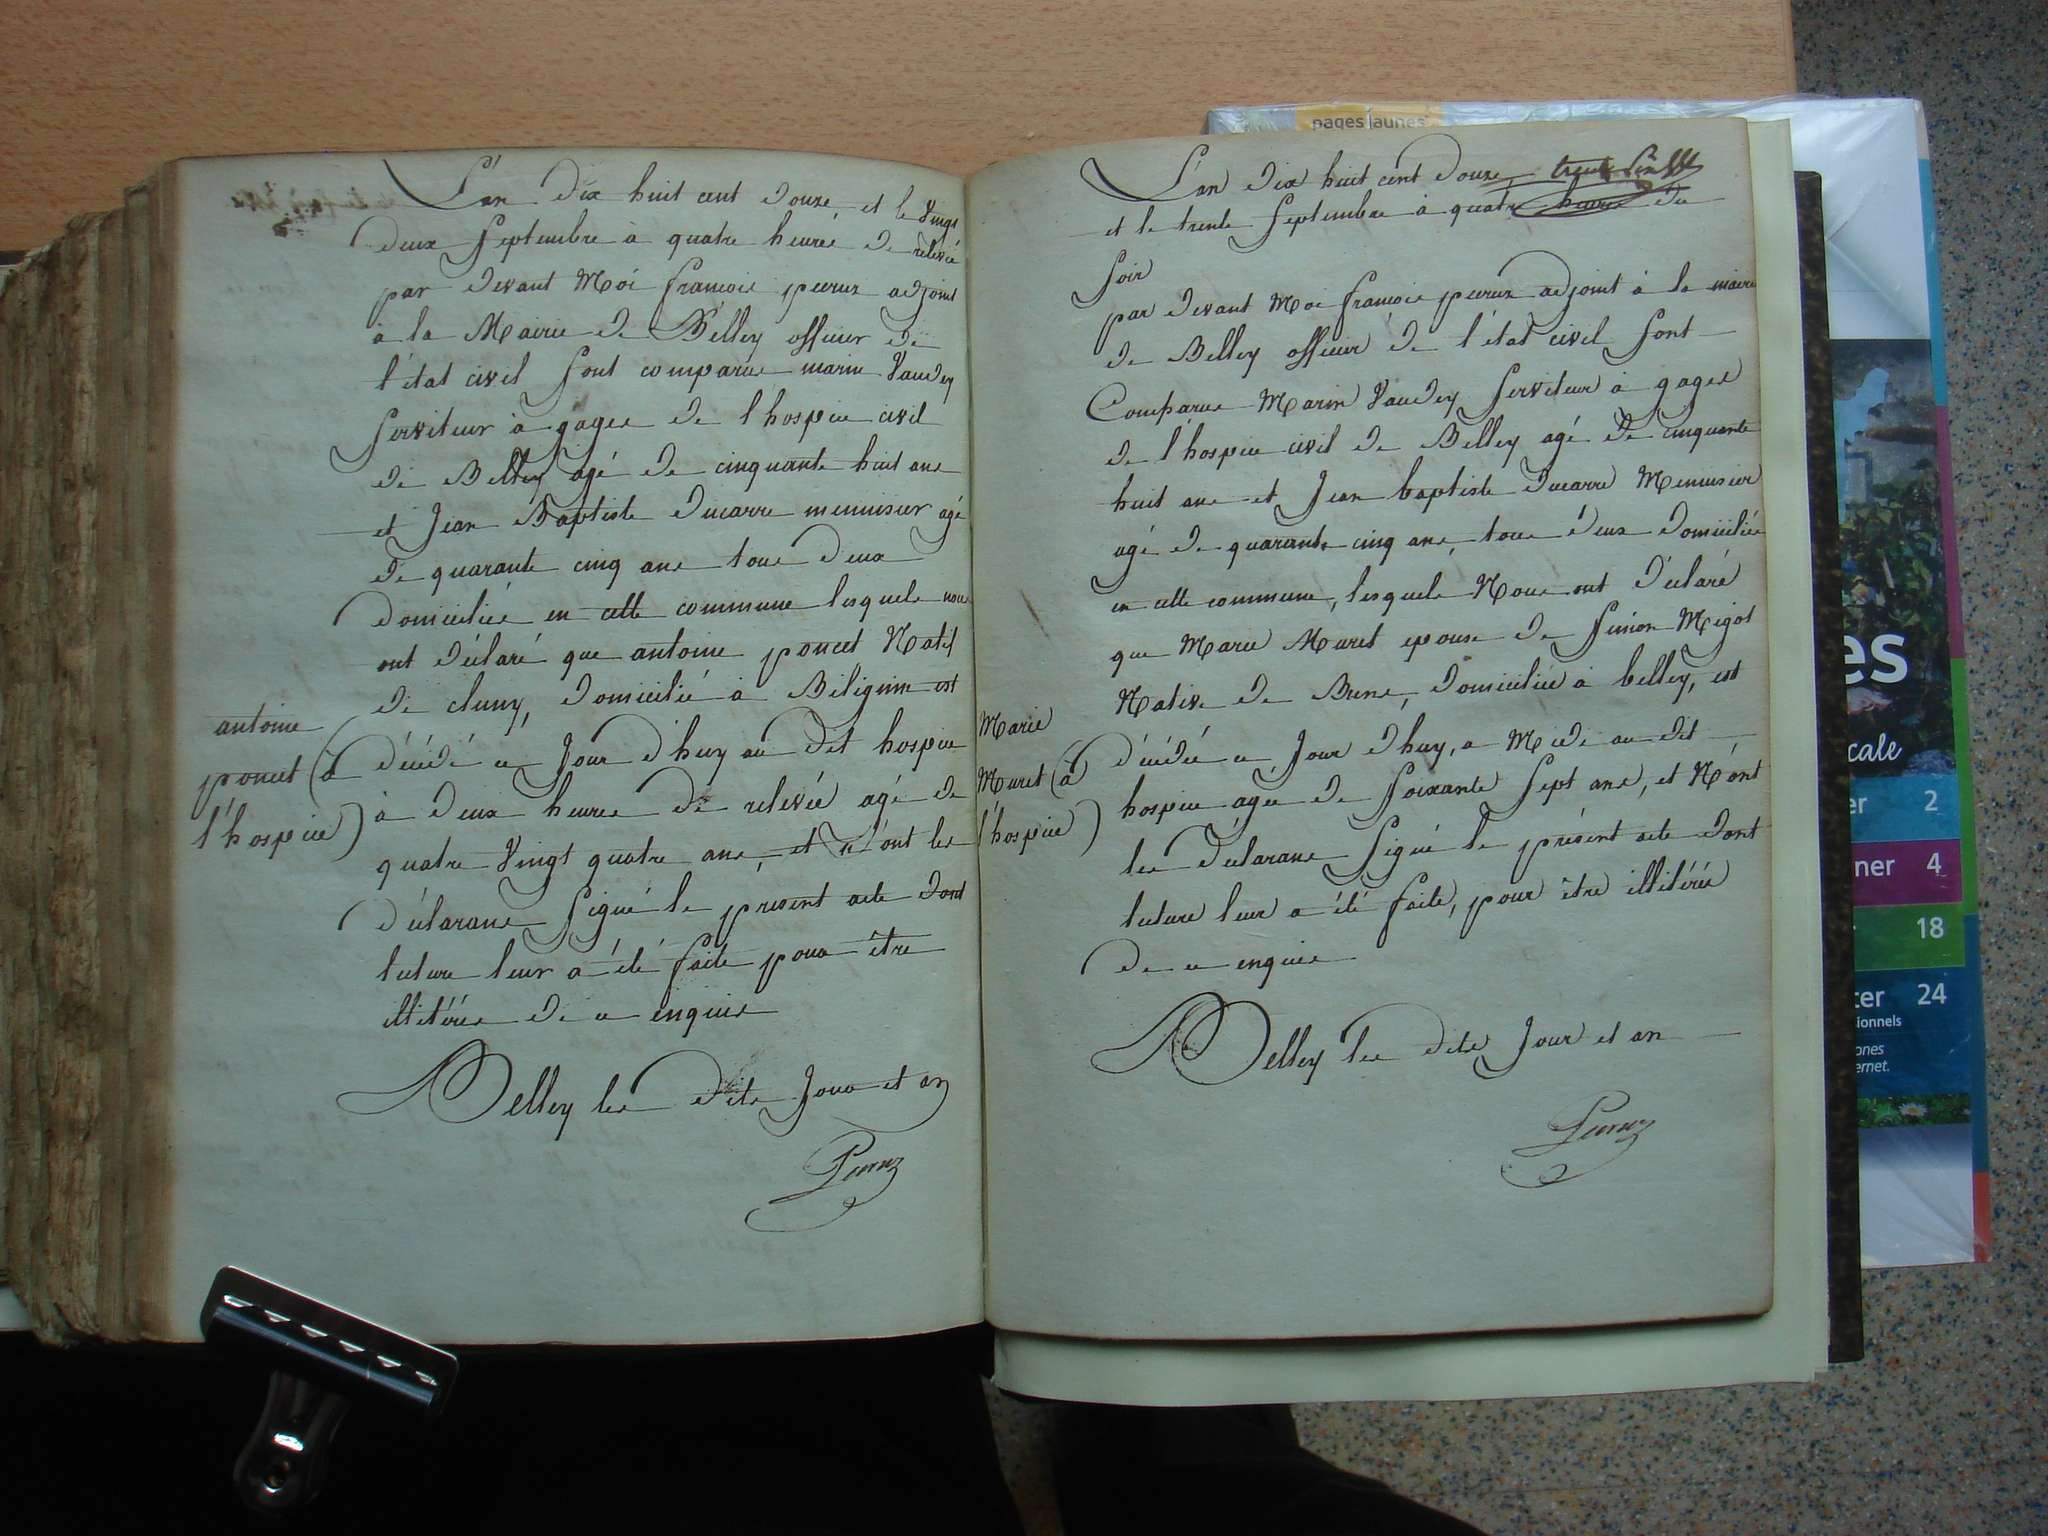 L'an dix huit cent douze et le vingt
deux Septembre à quatre heures de relevée
par devant Moi françois peruz adjoint
à la Mairie de Belley officier de
l'état civil sont comparus marin Vaudey
serviteur à gages de l'hospice civil
de Belley agé de cinquante huit ans
et Jean Baptiste Ducarre menuisier agé
de quarante cinq ans tous deux
domiciliés en cette commune lesquels nous
ont déclaré que antoine poncet Natif
de cluny, domicilié à Bilignin est
antoine
poncet (à
l'hospice)
décédé ce Jour d'huy au dit hospice
à deux heures de relevée agé de
quatre vingt quatre ans, et n'ont les
déclarans signé le présent acte dont
lecture leur a été faite pour être
illitérés de ce enquis
Belley les dits Jour et an
Peruz
L'an dix huit cent douze
et le trente Septembre à quatre heures du
soir
par devant Moi françois peruz adjoint à la mairie
de Belley officier de l'état civil sont
Comparus Marin Vaudey serviteur à gages
de l'hospice civil de Belley agé de cinquante
huit ans et Jean baptiste Ducarre Menuisier
agé de quarante cinq ans, tous deux domiciliés
en cette commune, lesquels Nous ont déclaré
que Marie Muret epouse de Simon Migot
Native de Brens, domiciliée à belley, est
Marie
Muret (à
l'hospice)
décédée ce Jour d'huy, a Midi au dit
hospice agée de soixante sept ans, et N'ont
les déclarans signé le présent acte dont
lecture leur a été faite, pour être illitérés
de ce enquis
Belley les dits Jour et an
Peruz
pages jaunes
es
cale
er 2
ner 4
18
ter 24
sionnels
ones
ernet.